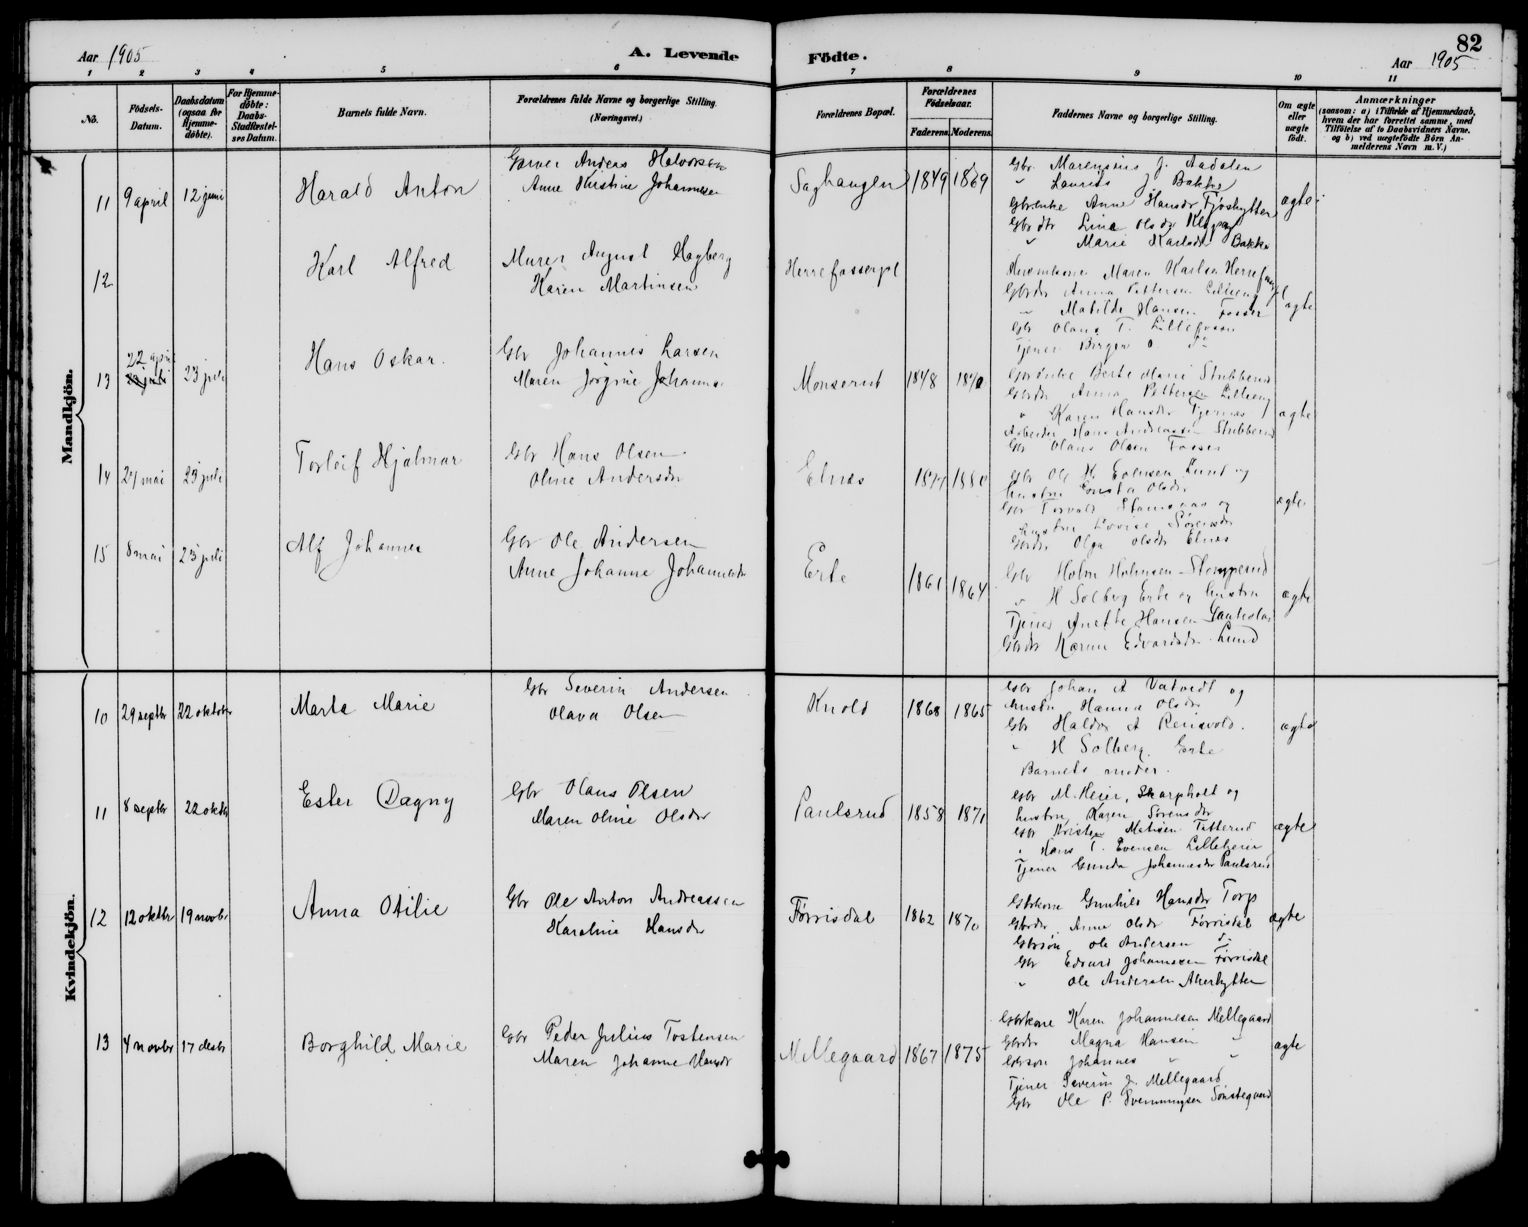 82
Aar 1905
A. Levende Födte.
Aar 1905
1 2 3 4 5 6 7 8 9 10 11
No.
Födsels-Datum.
Daabsdatum (ogsaa for Hjemme-döbte).
For Hjemme-döbte: Daabs-Stadfæstel-ses Datum.
Barnets fulde Navn.
Forældrenes fulde Navne og borgerlige Stilling.
(Næringsvei.)
Forældrenes Bopæl.
Forældrenes Födselsaar.
Faderens. Moderens.
Faddernes Navne og borgerlige Stilling.
Om ægte eller uægte födt.
Anmærkninger
(saasom: a) i Tilfælde af Hjemmedaab, hvem der har forrettet samme, med Tilföielse af to Daabsvidners Navne, og b) ved uægtefödte Börn An-melderens Navn m. V.)
Mandkjön.
11 9 april 12 juni Harald Anton
Garver Anders Halvorsen
Anne Kristine Johannesen
Saghaugen 1849 1869
Gbr. Marensius J. Aadalen
" Laurits J. Bakke
Gbrenke Anne Hansdr Fjöshytten
Gbrdtr Lina Olsdr
" Marie Karlsdr Bakke
ægte
12 Karl Alfred
Murer August Hagberg
Karen Martinsen
Herrefosserpl
Maren Karlsen
Gbrdr Anna Pettersen Lilleeng
" Matilde Hansen Fosser
Gbr Olaus T. Lillefosser
Tjener Birger O do
ægte
13 22 april 23 juli Hans Oskar
Gbr Johannes Larsen
Maren Jørgine Johanns
Monserud 1848
Berte Marie Stubberud
Gbrdr Anna Pettersen Lilleeng
" Karen Hansdr
Arbeider Hans Andreassen Stubberud
Gbr Olaus Olsen Fosser
ægte
14 24 mai 23 juli Torleif Hjalmar
Gbr Hans Olsen
Oline Andersdr
Elnæs
Gbr Ole H. Evensen Lund og
hustru Olsdr
Gbr Torvald og
hustru Lovise Sørensdr
Gbrdr Olga Olsdr Elnæs
ægte
15 8 mai 23 juli Alf Johannes
Gbr Ole Andersen
Anne Johanne Johannesdr
Erte 1861 1864
Gbr Holm Holmsen Stomperud
" H Solberg Erte og hustru
Tjener Anette Hansen
Gbrdr Karine Edvardsdr Lund
ægte
Kvindekjön.
10 29 septbr 22 oktober Marta Marie
Gbr Severin Andersen
Olava Olsen
Knold 1868 1865
Gbr Johan A Vatvedt og
hustru Hanna Olsdr
Gbr Haldor A Rensvold.
" H Solberg Erte
Barnets moder.
ægte
11 8 septbr 22 oktbr Ester Dagny
Gbr Olaus Olsen
Maren Oline Olsdr
Paulsrud 1858 1871
Gbr M. Heier, Skarpholt og
hustru Karen Sørensdr
Gbr Kristian Matisen Tetterud
" Hans T. Evensen Lilleheier
Tjener Gunda Johannesdr Paulsrud
ægte
12 12 oktbr 19 novbr Anna Otilie
Gbr Ole Anton Andreassen
Karoline Hansdr
Førrisdal 1862 1870
Gbrkone Gunhild Hansdr Torp
Gbrdr Anna Olsdr Førrisdal
Gbrsøn Ole Andersen do
Gbr Edvard Johannesen Førrisdal
" Ole Andersen Akerhytten
ægte
13 4 novbr 17 desbr Borghild Marie
Gbr Peder Julius Tostensen
Maren Johanne Hansdr
Mellegaard 1867 1875
Gbrkone Karen Johannesen Mellegaard
Gbrdr Magna Hansen "
Gbrson Johannes " "
Tjener Severin J. Mellegaard
Gbr Ole P. Svenningsen Sønstegaard
ægte